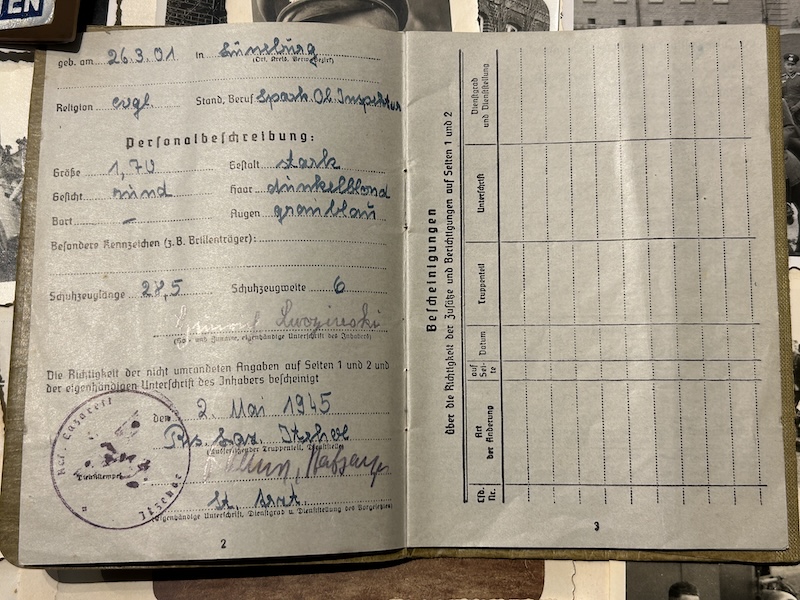 TEN
geb. am 26.3.01 in Lüneburg
(Ort, Kreis, Verw.-Bezirk)
Religion evgl Stand, Beruf Spark. Ob. Inspektor
Personalbeschreibung:
Größe 1,70 Gestalt stark
Gesicht rund Haar dunkelblond
Bart – Augen graublau
Besondere Kennzeichen (z.B. Brillenträger):
Schuhzeuglänge 28,5 Schuhzeugweite 6
(Vor- und Zuname, eigenhändige Unterschrift des Inhabers)
Die Richtigkeit der nicht umrandeten Angaben auf Seiten 1 und 2 und
der eigenhändigen Unterschrift des Inhabers bescheinigt
den 2. Mai 1945
Res. Laz. Itzehoe
(Ausfertigender Truppenteil, Dienststelle)
St. Arzt
(Eigenhändige Unterschrift, Dienstgrad u. Dienststellung des Vorgesetzten)
Res. Lazarett
Dienststempel
Itzehoe
2
Bescheinigungen
über die Richtigkeit der Zusätze und Berichtigungen auf Seiten 1 und 2
Lfd. Nr.
Art der Änderung
auf Sei-te
Datum
Truppenteil
Unterschrift
Dienstgrad und Dienststellung
3